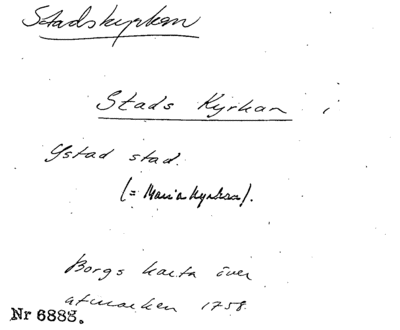 Stadskyrkan
Stads Kyrkan i
Ystad stad.
(= Mariakyrkan).
Borgs karta över
utmarken 1758.
Nr 6883.